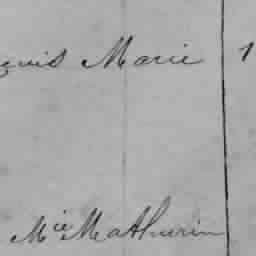 Marie 1
Mie Mathurin